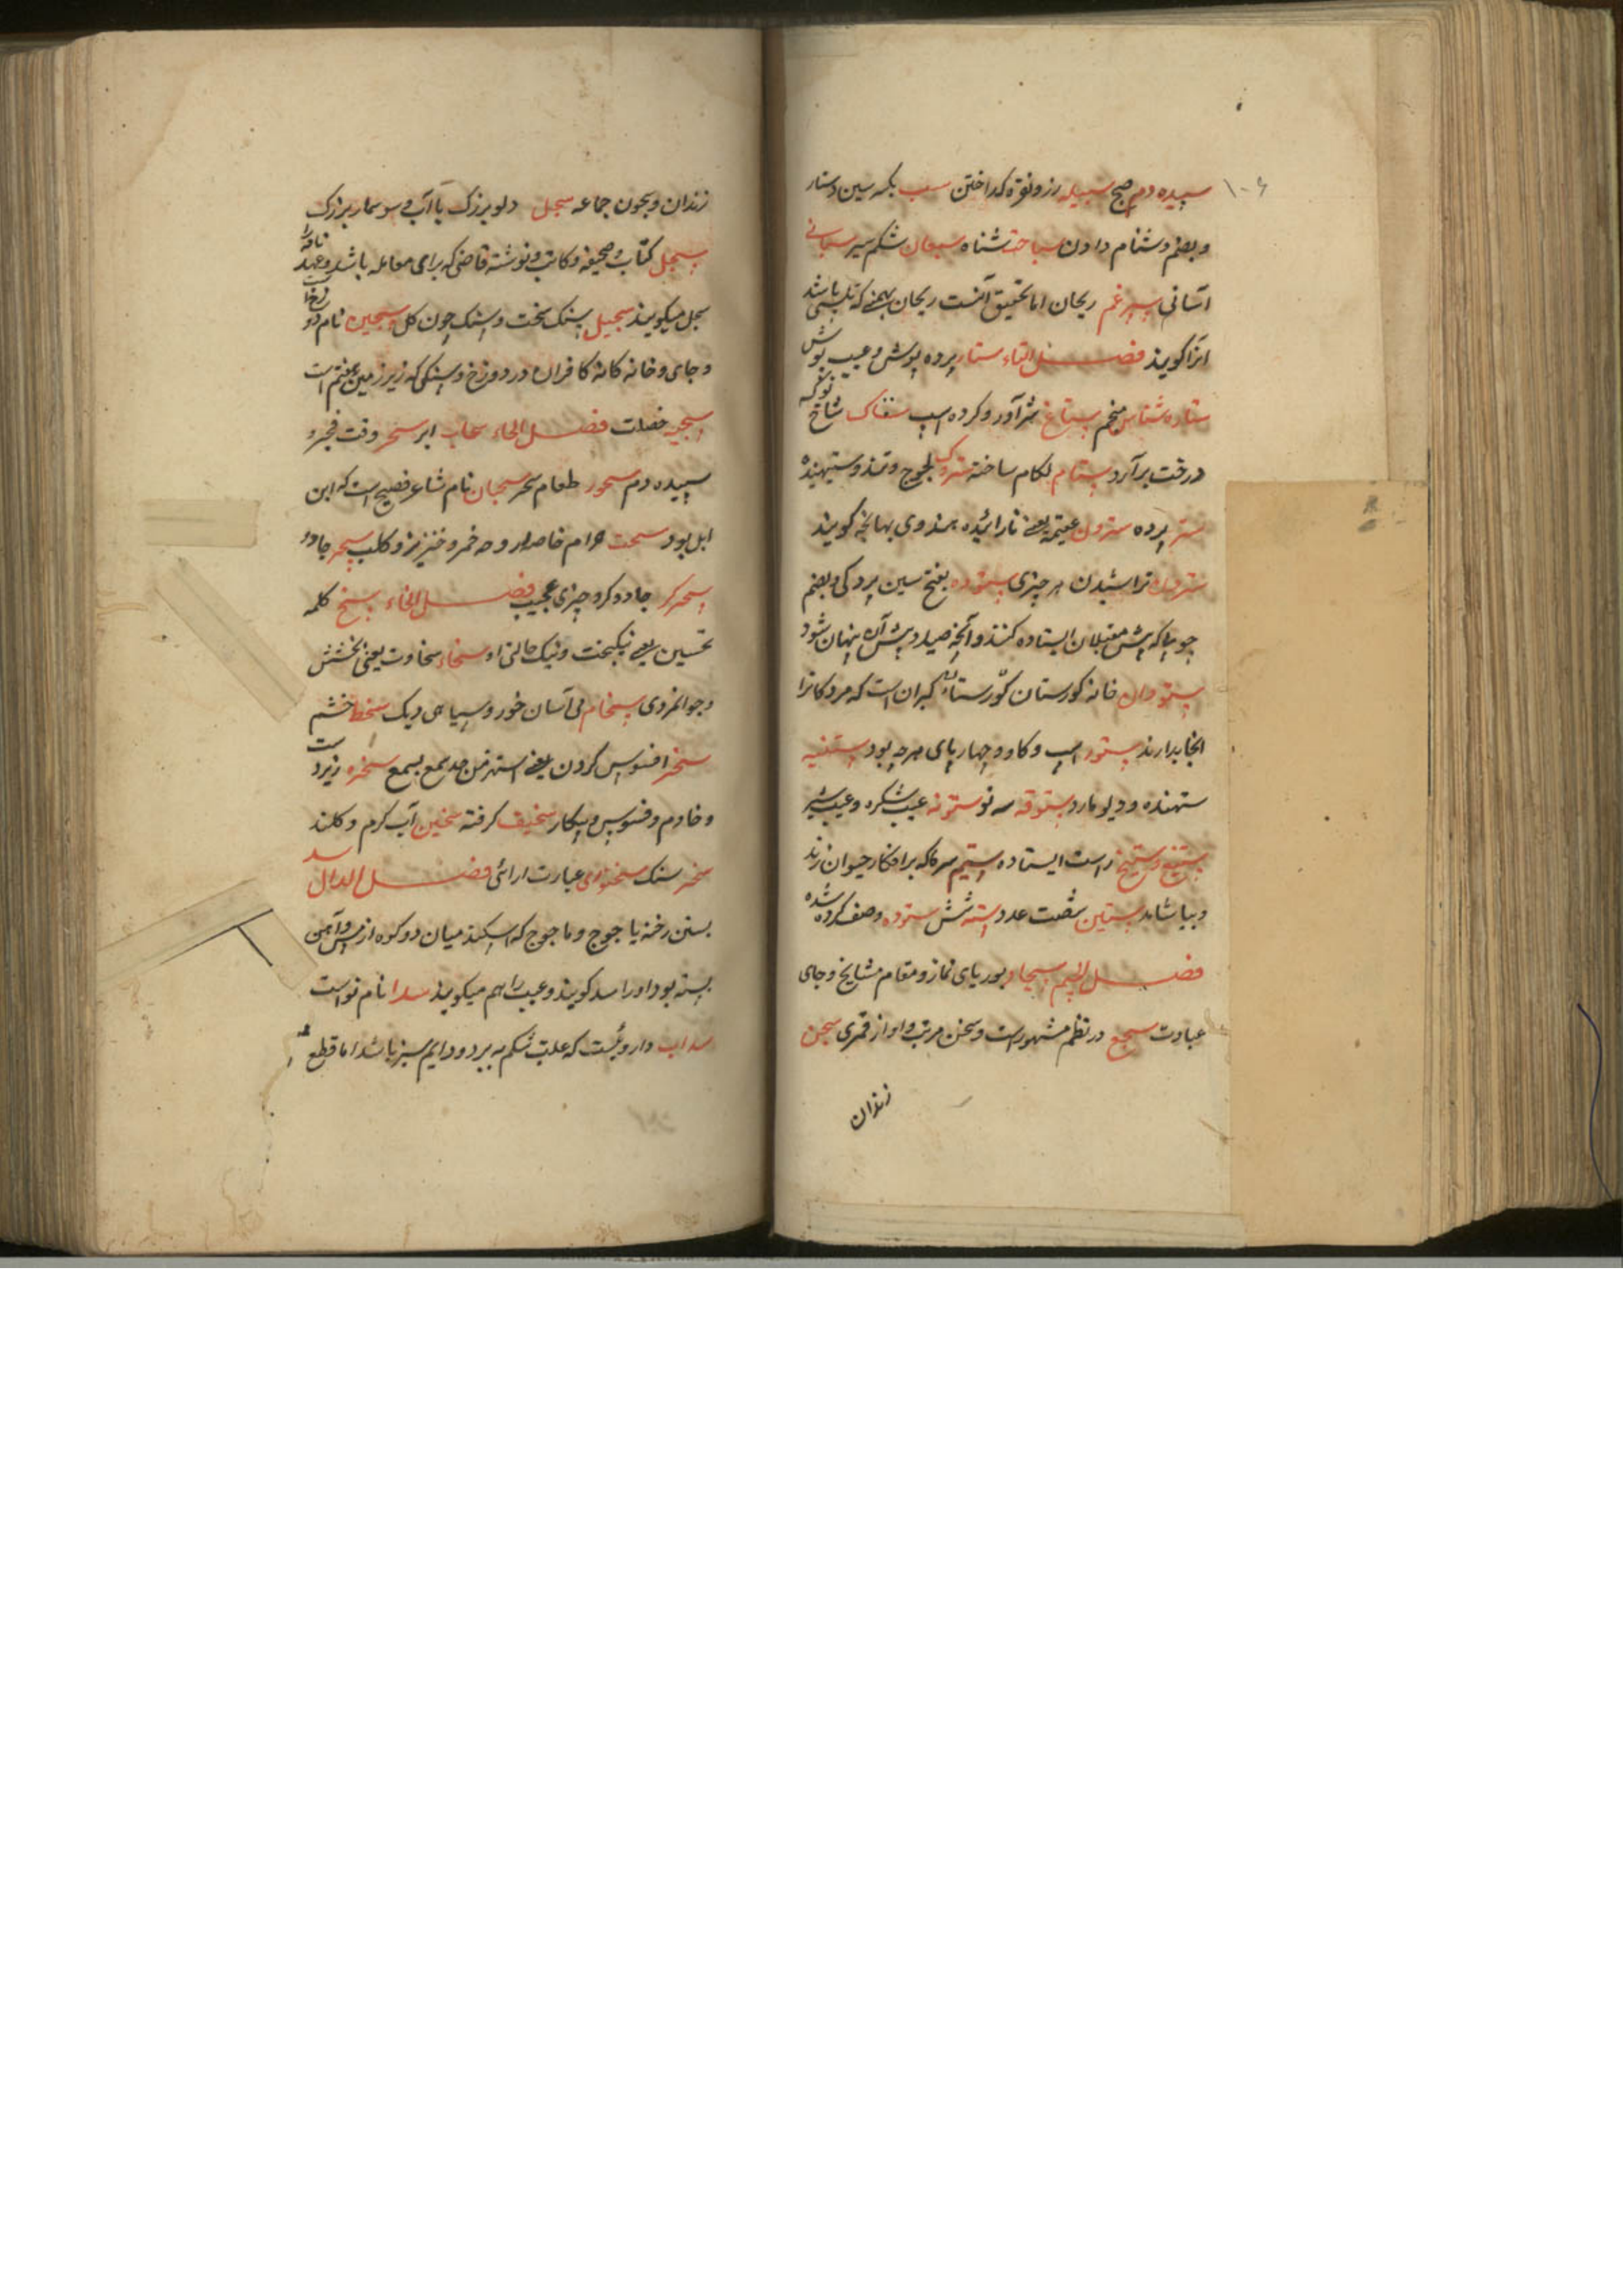 ۱۰۶
سپیده دم صبح سبیله زر و نقره کداختن سب بکسر سین دستار
و بضم دشنام دادن سباحت شناه سبعان شکم سیر سبحانی
آسانی سپرغم ریحان اما تحقیق آنست ریحان که باشد
انرا کویند فصل التاء ستار پرده پوش و عیب پوش
ستاره شناس منجم ستاغ شاخ نو که
درخت برآرد ستام لکام ساخته سترک لجوج و تند و ستیهنده
ستر پرده سترون عقیمه یعنی نازائیده هندوی بهانجه کویند
ستردن تراشیدن هر چیزی ستوده بفتح سین و بضم
چوبها که پیش ایستاده کنند و آنچه صیاد پس آن پنهان شود
ستودان خانه کورستان کورستان کبران است که مردکانرا
انجا بدارند ستور اسپ و کاو و چهارپای هرچه بود ستنبه
ستهنده و دیو مارد ستوقه سه تو
ستیغ و ستیخ راست ایستاده ستیم سرما که بر افکار حیوان زند
و بیاشاید ستین شصت عدد سته شش ستوده وصف کرده شده
فصل الجیم سجاد بوریای نماز و مقام مشایخ و جای
عبادت سجع در نظم مشهورست و سخن مرتب و اواز قمری سجن
زندان
زندان و سجون جماعه سجل دلو بزرک با آب و سوسمار بزرک
سجل کتاب و صحیفه و کاتب و نوشته قاضی که برای معامله باشد و عهد نامه را
سجل میکویند سجیل سنک سخت و سنک چون کل سجین نام دوزخ
و جای و خانه کافران در دوزخ و سنکی که زیر زمین هفتم است
سجیه خصلت فصل الحاء سحاب ابر سحر وقت فجر و
سپیده دم سحور طعام سحر سحبان نام شاعر فصیح است که ابن
ابل بود سحت حرام خمر و خنزیر و کلب سحر جادو
سحر کر جادوکر و چیزی عجیب فصل الخاء سخ کلمه
تحسین یعنی نیکبخت و نیک حالتی او سخاء سخاوت یعنی بخشش
و جوانمردی سخام می آسان خور و سیاهی دیک سخط خشم
سخر افسوس کردن یعنی سمع یسمع سخره زیردست
و خادم و فسوس و بیکار سخیف کرفته سخین آب کرم و کلند
سخر سنک سخنوری عبارت ارائی فصل الدال سد
بستن رخنه یاجوج و ماجوج که اسکندر میان دو کوه از مس و آهن
بسته بود او را سد کویند و عیب را هم میکویند سدا نام نواست
سداب داروئیست که علت شکم به برد و دایم سبز باشد اما قطع